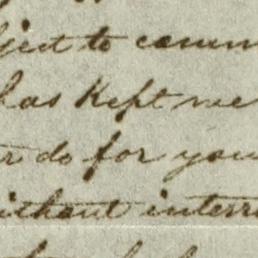 ject to comm
has kept me
or do for you
without interr